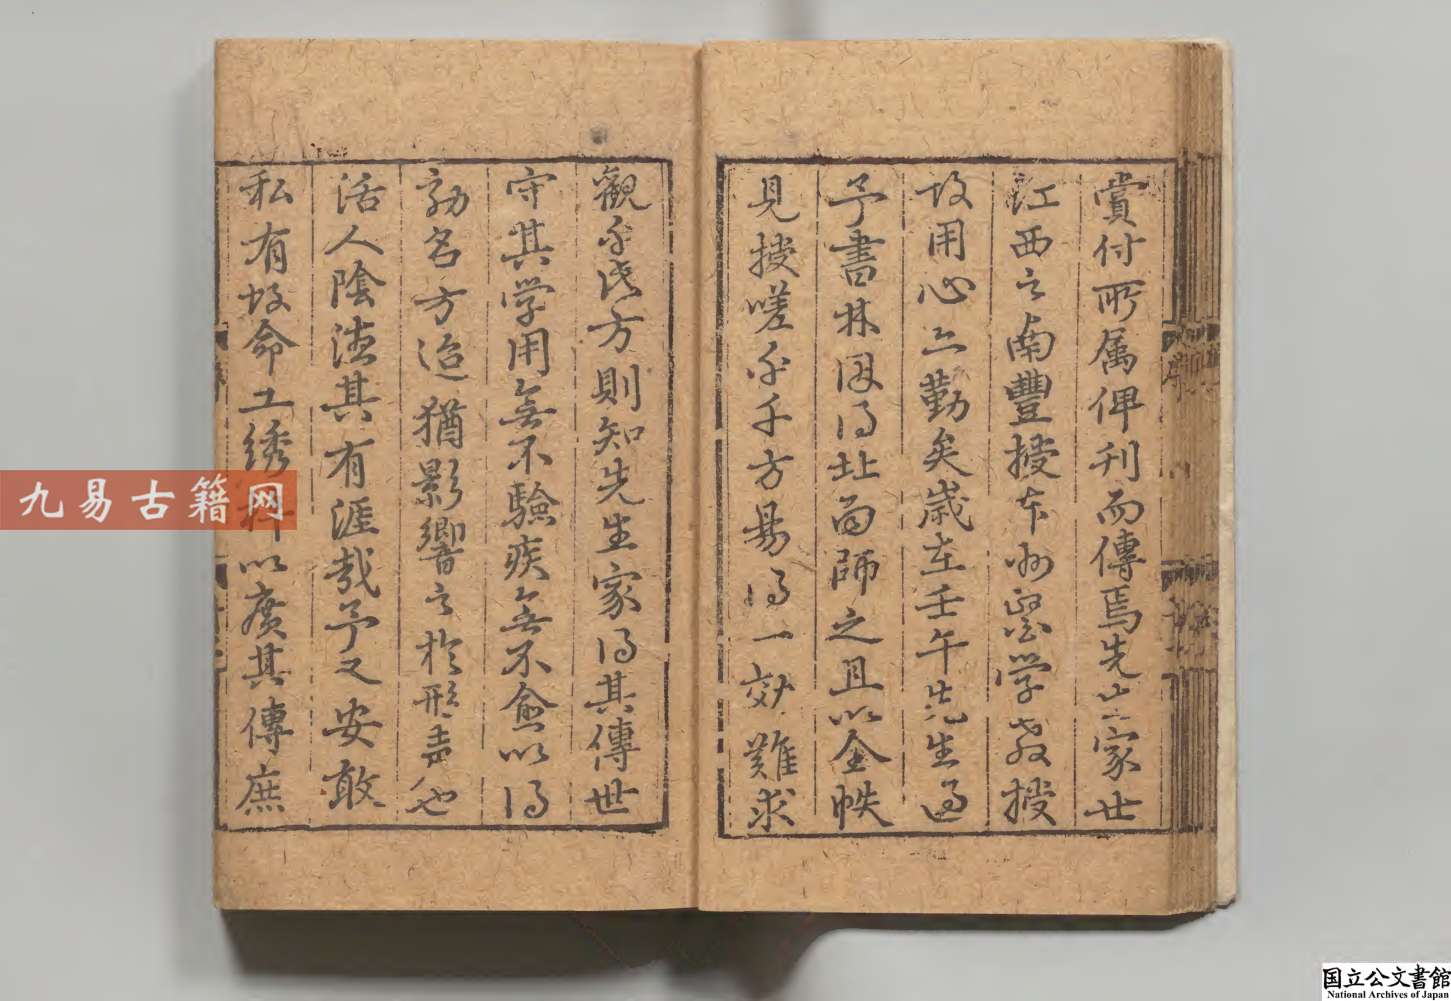 賞付所属俾刋而傳焉先生家世
江西之南豐授本州醫学教授
故用心亦勤矣歳在壬午先生過
予書林因得北面師之且以全帙
見授嗟乎千方易得一効難求
觀乎此方則知先生家得其傳世
守其学用無不驗疾無不愈以得
効名方迨猶影響之於形声也
活人陰德其有涯哉予又安敢
私有故命工綉梓以廣其傳庶
九易古籍网
国立公文書館
National Archives of Japan